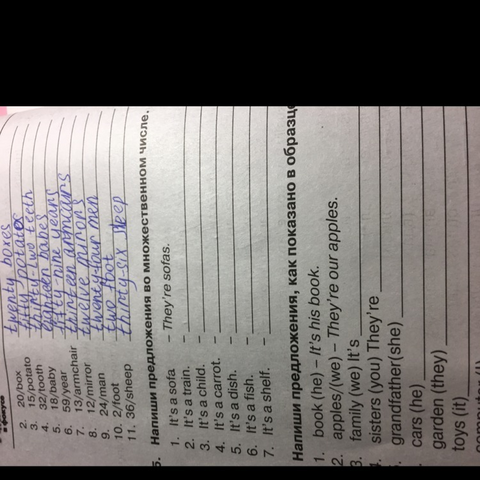 в фокусе
2. 20/box twenty boxes
3. 15/potato fifty potatos
4. 32/tooth thirty-two teeth
5. 18/baby eighteen
6. 59/year fifty-nine years
7. 13/armchair thirteen
8. 12/mirror twelve
9. 24/man twenty-four men
10. 2/foot two foot
11. 36/sheep thirty-six sheep
Напиши предложения во множественном числе.
1. It's a sofa – They're sofas.
2. It's a train. –
3. It's a child. –
4. It's a carrot. –
5. It's a dish. –
6. It's a fish. –
7. It's a shelf. –
Напиши предложения, как показано в
1. book (he) – It's his book.
2. apples (we) – They're our apples.
3. family (we) It's
4. sisters (you) They're
grandfather(she)
cars (he)
garden (they)
toys (it)